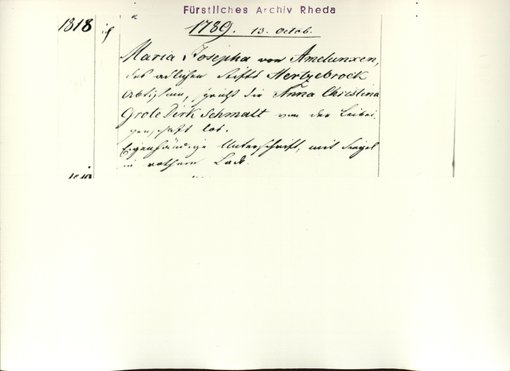 Fürstliches Archiv Rheda
1318 1789. 13. Octob.
Maria Josepha von Amelunxen,
des adlichen Stifts Hertzebrock
Abtissinn, spricht die Anna Christina
Grote Dirk Schmatt von der Leibei
genschaft los.
Eigenhändige Unterschrift, mit Siegel
in rothem Lack.